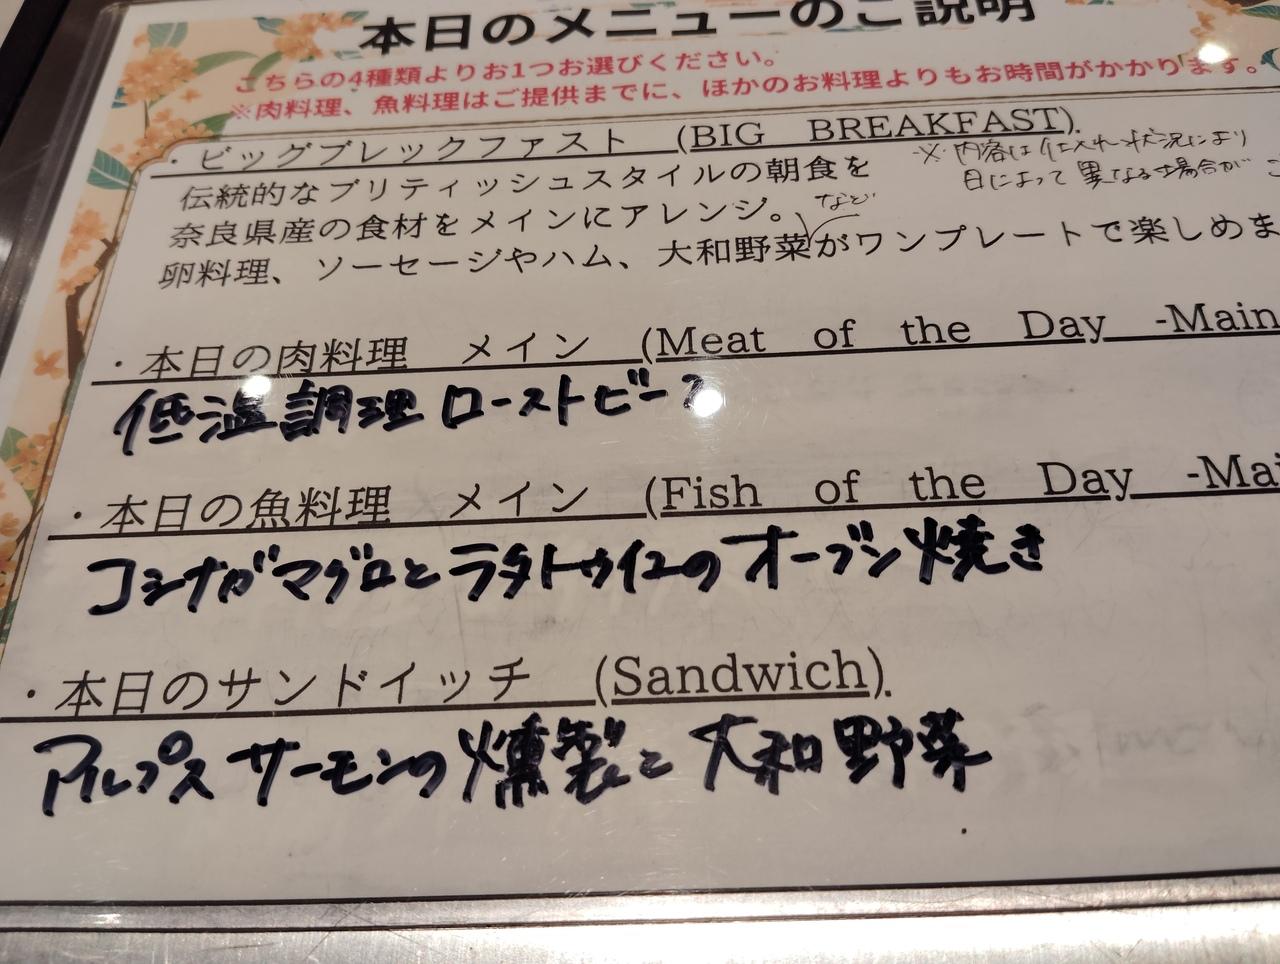 本日のメニューのご説明
こちらの4種類よりお1つお選びください。
※肉料理、魚料理はご提供までに、ほかのお料理よりもお時間がかかります。
・ビッグブレックファスト (BIG BREAKFAST).
※内容は仕入れ状況により
日によって異なる場合が
伝統的なブリティッシュスタイルの朝食を
奈良県産の食材をメインにアレンジ。
など
卵料理、ソーセージやハム、大和野菜がワンプレートで楽しめま
・本日の肉料理 メイン (Meat of the Day -Main
低温調理ローストビーフ
・本日の魚料理 メイン (Fish of the Day -Mai
コシナガマグロとラタトゥイユのオーブン焼き
・本日のサンドイッチ (Sandwich).
アルプスサーモンの燻製と大和野菜